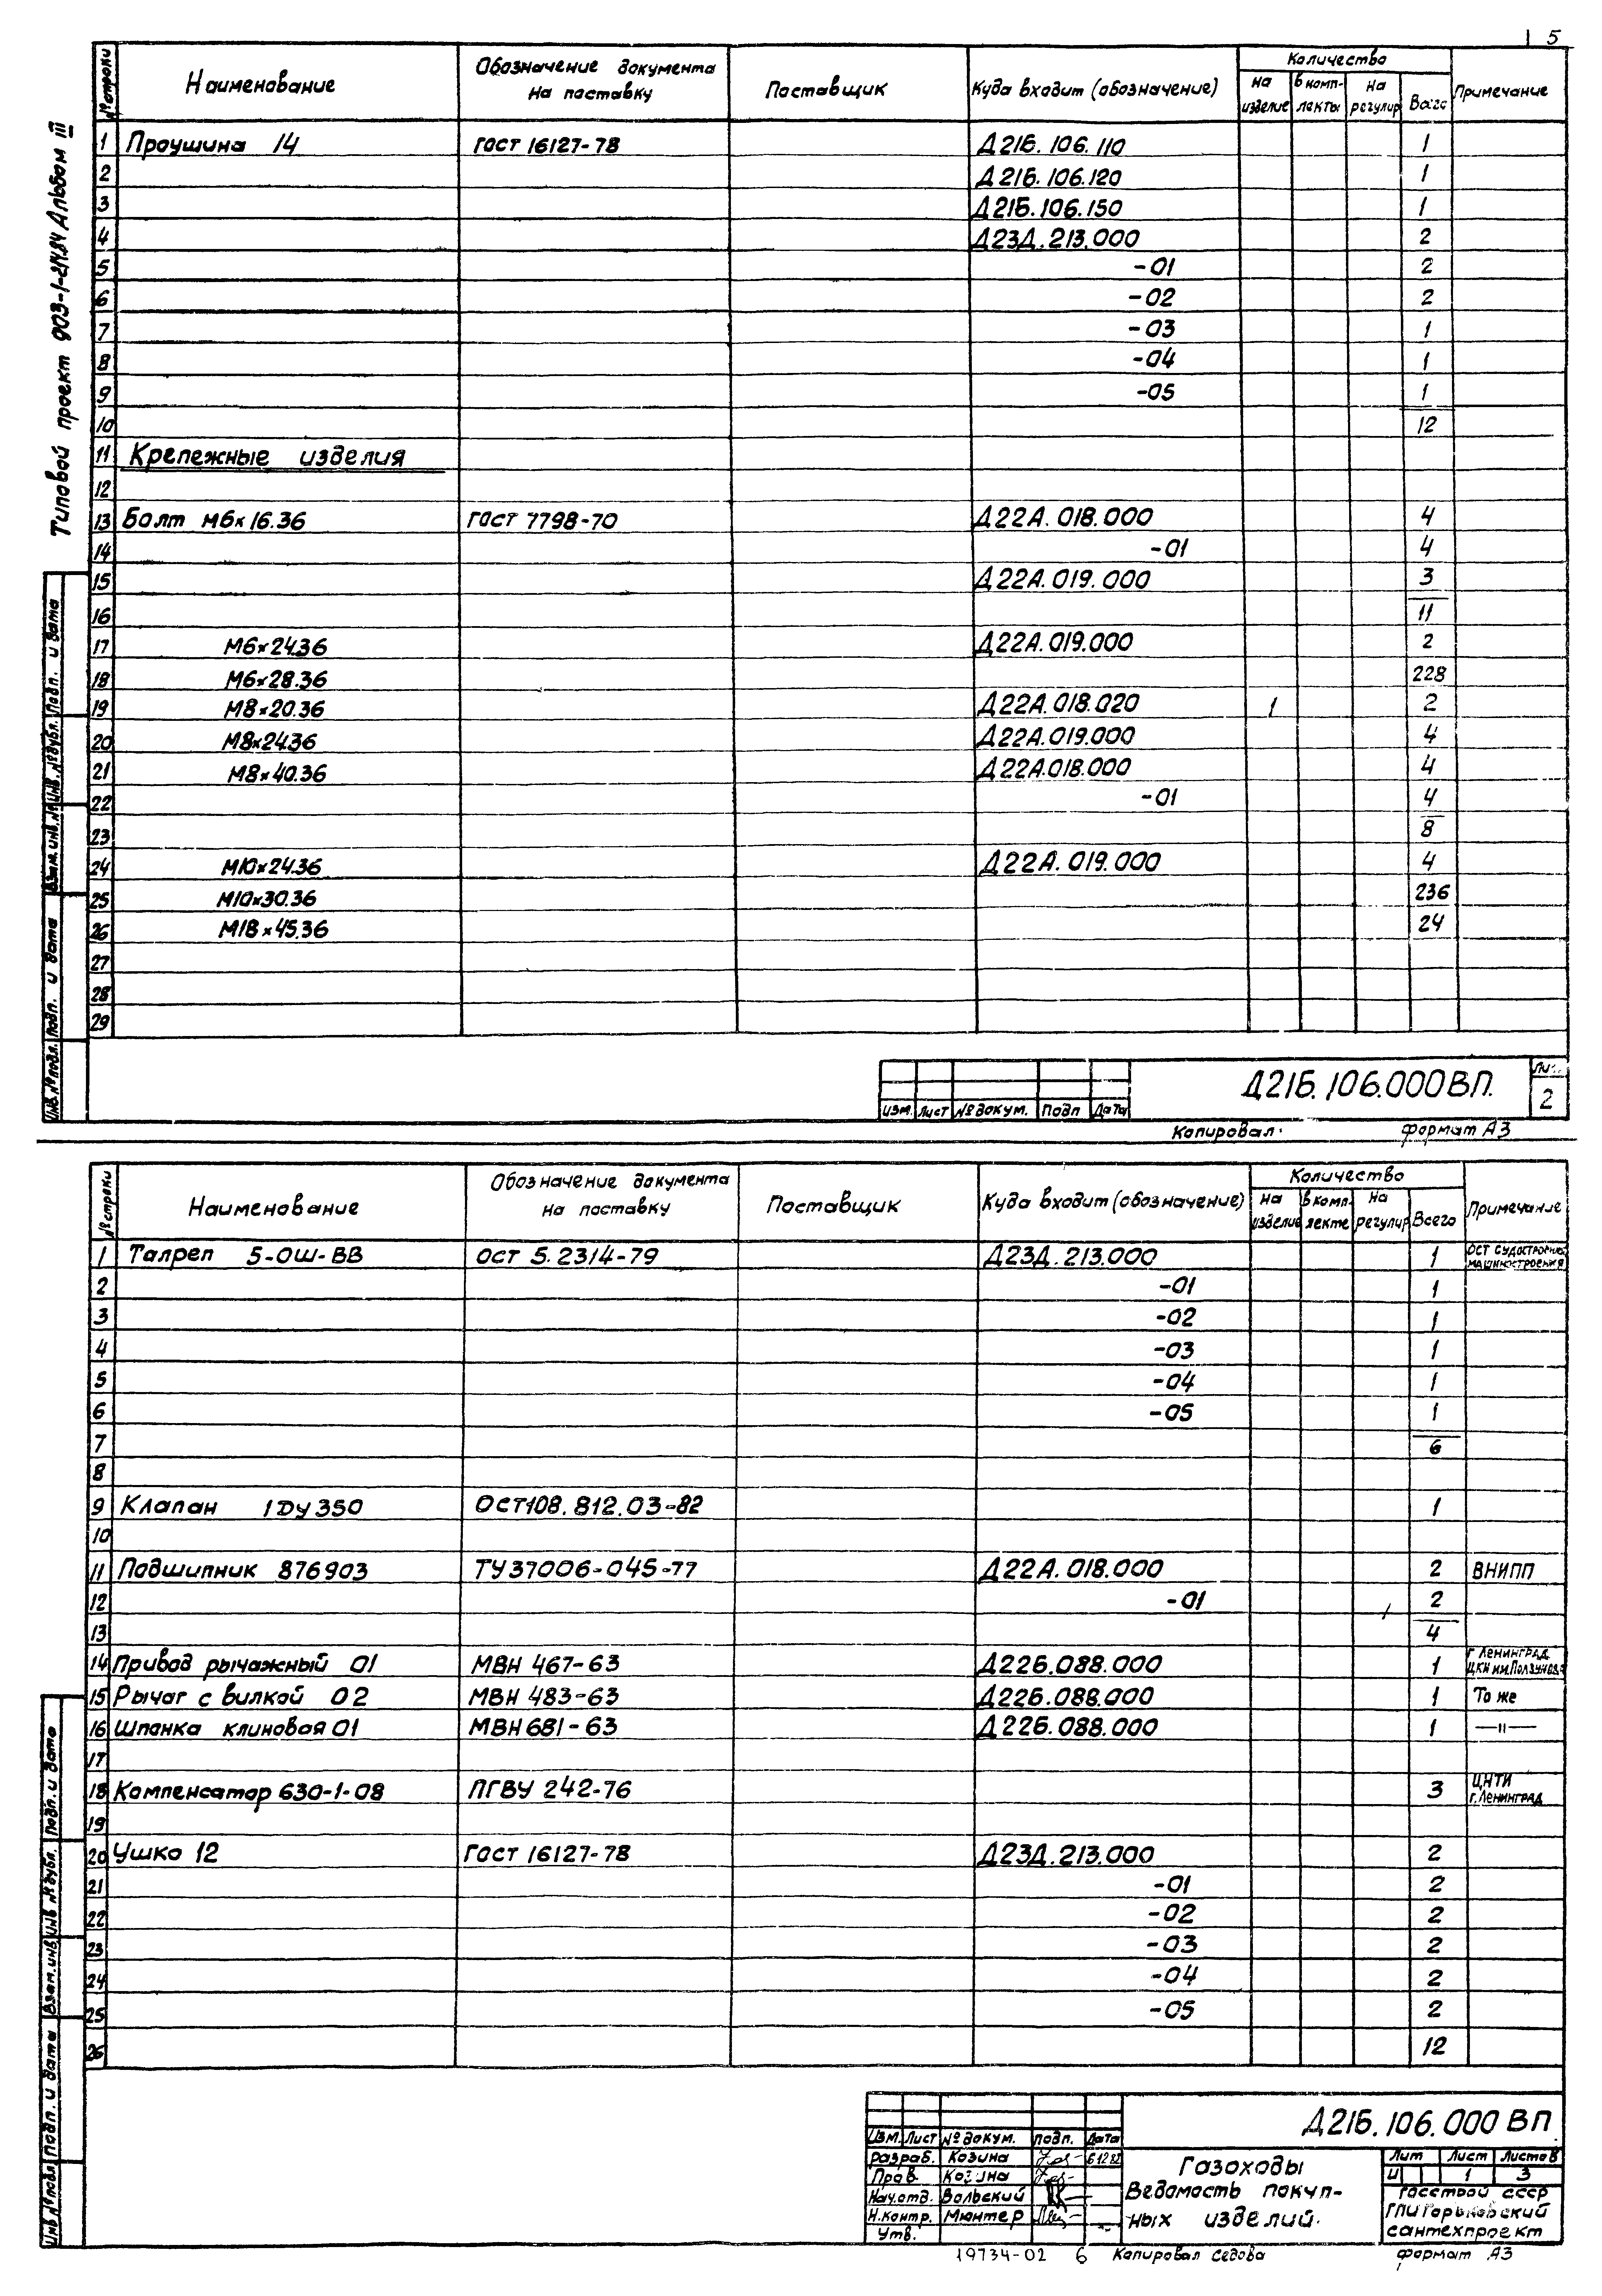 5
Типовой проект 903-1-214.84 Альбом III
№ строки Наименование Обозначение документа на поставку Поставщик Куда входит (обозначение) Количество на изделие в комп-лекты на регулир Всего Примечание
1 Проушина 14 ГОСТ 16127-78 Д21Б.106.110 1
2 Д21Б.106.120 1
3 Д21Б.106.150 1
4 Д23Д.213.000 2
5 -01 2
6 -02 2
7 -03 1
8 -04 1
9 -05 1
10 12
11 Крепежные изделия
12
13 Болт М6х16.36 ГОСТ 7798-70 Д22А.018.000 4
14 -01 4
15 Д22А.019.000 3
16 11
17 М6х24.36 Д22А.019.000 2
18 М6х28.36 228
19 М8х20.36 Д22А.018.020 1 2
20 М8х24.36 Д22А.019.000 4
21 М8х40.36 Д22А.018.000 4
22 -01 4
23 8
24 М10х24.36 Д22А.019.000 4
25 М10х30.36 236
26 М18х45.36 24
27
28
29
Инв. № подл. Подп. и дата Взам. инв. № Инв. № дубл. Подп. и дата
Изм. Лист № докум. Подп Дата
Д21Б.106.000ВП.
Лис.
2
Копировал: формат А3
№ строки Наименование Обозначение документа на поставку Поставщик Куда входит (обозначение) Количество на изделие в комп-лекте на регулир Всего Примечание
1 Талреп 5-ОШ-ВВ ОСТ 5.2314-79 Д23Д.213.000 1 ОСТ судостроения машиностроения
2 -01 1
3 -02 1
4 -03 1
5 -04 1
6 -05 1
7 6
8
9 Клапан 1ДУ350 ОСТ108.812.03-82 1
10
11 Подшипник 876903 ТУ37006-045-77 Д22А.018.000 2 ВНИПП
12 -01 2
13 4
14 Привод рычажный 01 МВН 467-63 Д22Б.088.000 1 г Ленинград ЦКИ им.Ползунова
15 Рычаг с вилкой 02 МВН 483-63 Д22Б.088.000 1 То же
16 Шпанка клиновая 01 МВН 681-63 Д22Б.088.000 1 —"—
17
18 Компенсатор 630-1-08 ПГВУ 242-76 3 ЦНТИ г.Ленинград
19
20 Ушко 12 ГОСТ 16127-78 Д23Д.213.000 2
21 -01 2
22 -02 2
23 -03 2
24 -04 2
25 -05 2
26 12
Инв № подл Подп. и дата Взам. инв Инв № дубл. Подп. и дата
Д21Б.106.000 ВП
Изм. Лист № докум. подп. Дата
разраб. Козина 6.12.82
Пров. Козина
Нач.отд. Вольский
Н.контр. Мюнтер
Утв.
Газоходы
Ведомость покуп-
ных изделий.
Лит Лист Листов
И 1 3
Госстрой СССР
ГПИ Горьковский
сантехпроект
19734-02 6 Копировал Седова формат А3